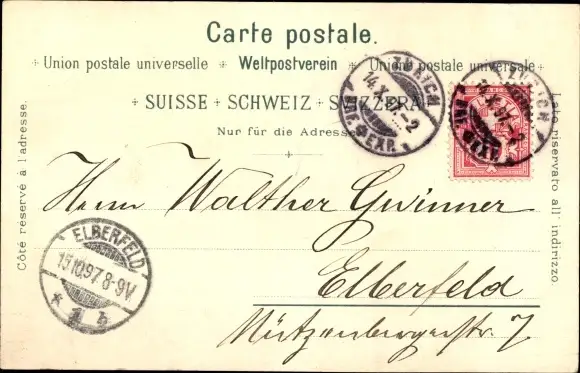 Carte postale.
Union postale universelle Weltpostverein Union postale universale
SUISSE SCHWEIZ SVIZZERA
Nur für die Adresse
Côté réservé à l'adresse.
Lato riservato all' indirizzo.
ZÜRICH
14.X.97-2
BRF. EXP.
ZÜRICH
BRF. EXP.
Herrn Walther Gwinner
Elberfeld
Nützenbergerstr. 7
ELBERFELD
15.10.97.8-9V.
* 1 h